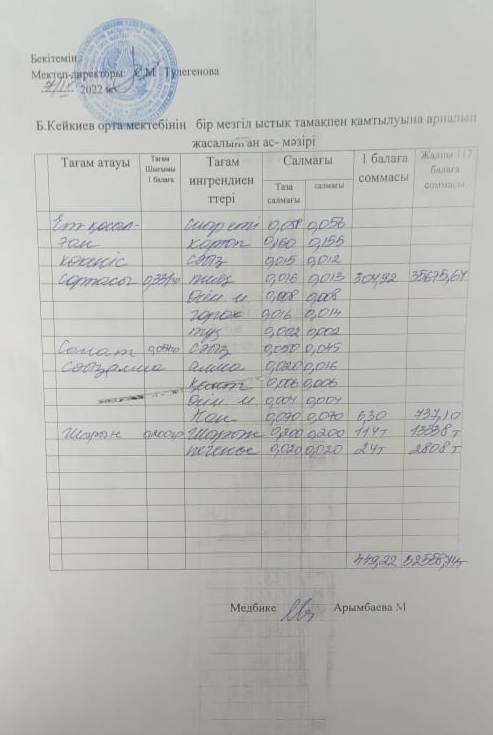 Бекітемін
Мектеп директоры: С.М Тулегенова
2022 ж
Б.Кейкиев орта мектебінің бір мезгіл ыстық тамақпен қамтылуына арналып
жасалынған ас- мәзірі
Тағам атауы Тағам Шығымы 1 балаға Тағам ингрендиенттері Салмағы 1 балаға соммасы Жалпы 117 балаға соммасы
Таза салмағы салмағы
Ет қосыл- сиыр еті 0,058 0,056
ған картоп 0,160 0,155
көкөніс сәбіз 0,015 0,012
сорпасы пияз 0,016 0,013 304,92 35675,64
Өсім м 0,008 0,008
горох 0,016 0,014
тұз 0,002 0,002
Салат сәбіз 0,050 0,045
алма 0,020 0,016
қант 0,006 0,006
Өсім м 0,004 0,004
Нан 0,070 0,070 6,30 737,10
Шырын 0,200 Шырын 0,200 0,200 114т 13338 т
печенье 0,020 0,020 24т 2808 т
449,22
Медбике Арымбаева М